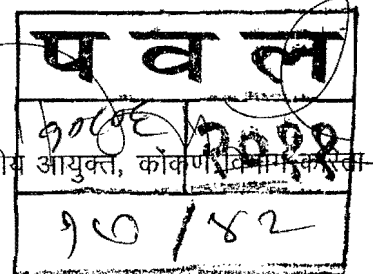 प व ल
१०८७६ २०११
ीय आयुक्त, कोंकण विभाग करिता
१७ / ४२